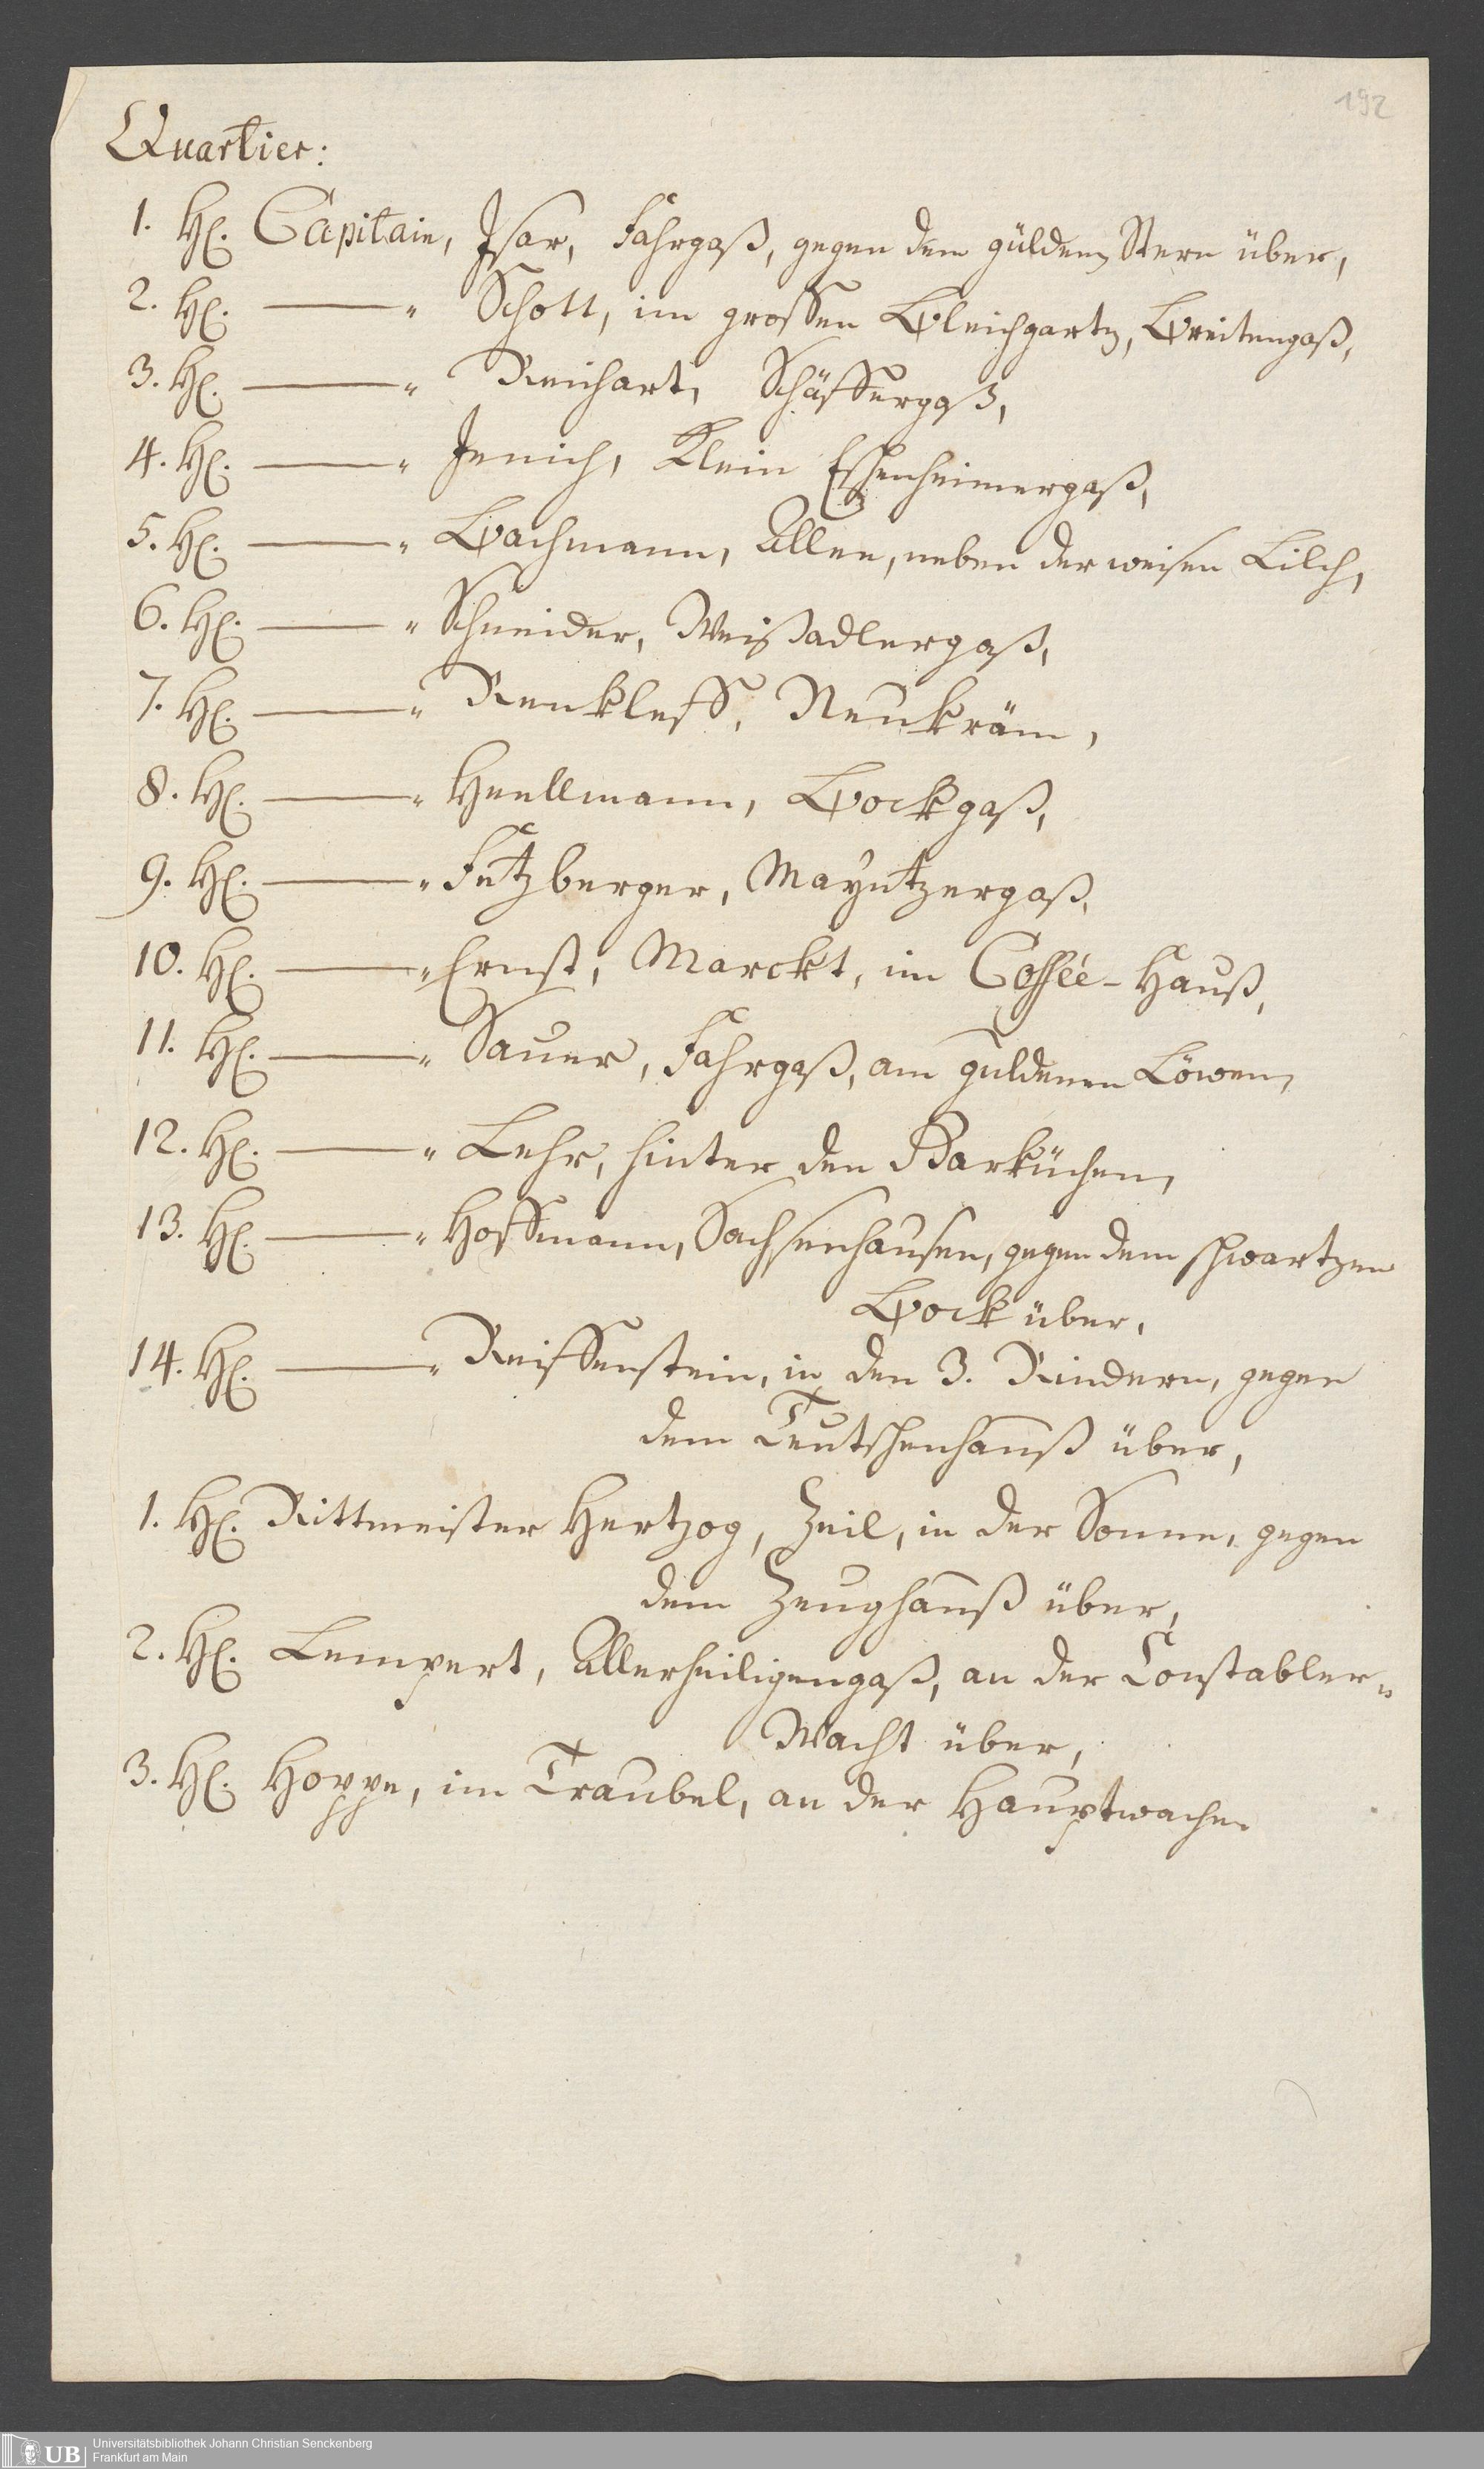 192
Quartier:
1. H. Capitain, Isar, Fahrgaß, gegen dem güldenen Stern über,
2. H. ——— " Schott, im grossen Bleichgarten, Breitengaß,
3. H. ——— " Reichart, Schäffergaß,
4. H. ——— " Jenich, Klein Eschenheimergaß,
5. H. ——— " Bachmann, Allee, neben der weisen Lilch,
6. H. ——— " Schneider, Weißadlergaß,
7. H. ——— " Renkleff, Neukräm,
8. H. ——— " Heellmann, Bockgaß,
9. H. ——— " Fetzberger, Mayntzergaß,
10. H. ——— " Ernst, Marckt, im Coffée-Hauß,
11. H. ——— " Sauer, Fahrgaß, am guldenen Löwen,
12. H. ——— " Lehr, hinter den Barküchen,
13. H. ——— " Hoffmann, Sachsenhausen, gegen dem schwartzen
Bock über,
14. H. ——— " Reiffenstein, in den 3. Rindern, gegen
dem Teutschenhauß über,
1. H. Rittmeister Hertzog, Zeil, in der Sonne, gegen
dem Zeughauß über,
2. H. Lempert, Allerheiligengaß, an der Constabler-
Wacht über,
3. H. Hoppe, im Traubel, an der Hauptwache.
UB
Universitätsbibliothek Johann Christian Senckenberg
Frankfurt am Main